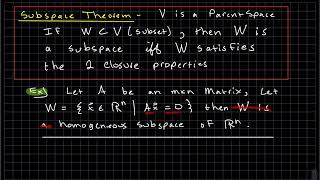 Subspace Theorem - V is a Parent Space
If W ⊂ V (subset), then W is
a subspace iff W satisfies
the 2 closure properties
Ex) Let A be an mxn Matrix, Let
W = { x⃗ ∈ ℝⁿ | Ax⃗ = 0 } then W is
a homogeneous subspace of ℝⁿ.